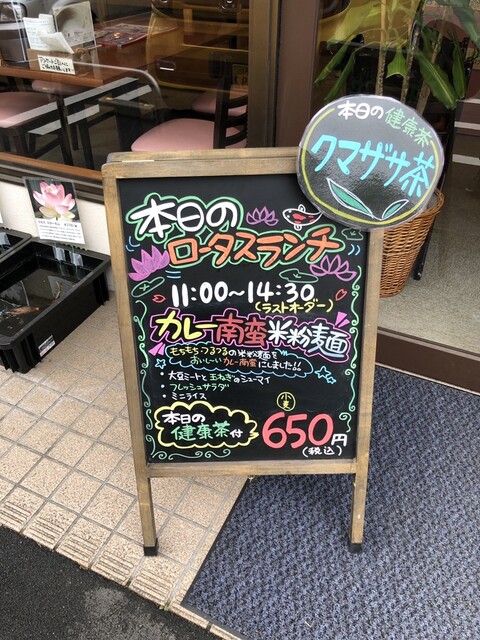 本日の健康茶
クマザサ茶
本日の
ロータスランチ
11:00~14:30
(ラストオーダー)
カレー南蛮米粉麺
もちもちつるつるの米粉麺を
おいしいカレー南蛮にしました!!
・大豆ミートと玉ねぎのシューマイ
・フレッシュサラダ
・ミニライス
小麦
本日の
健康茶付
650円
(税込)